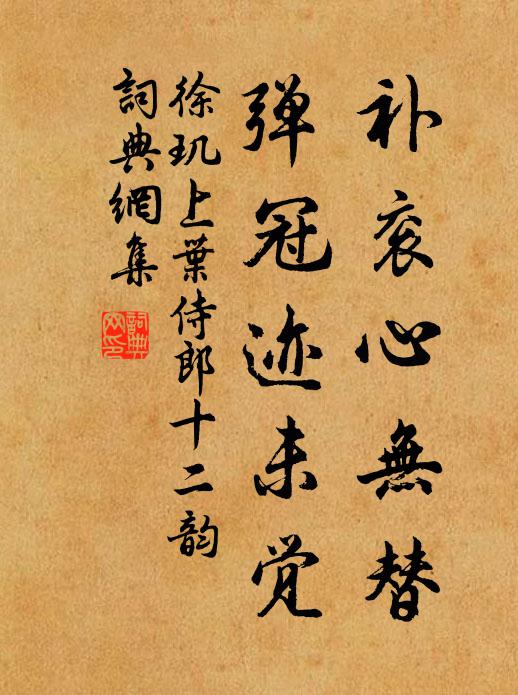 补衮心無替
弹冠迹未觉
徐玑上葉侍郎十二韵
詞典網集
詞典網印